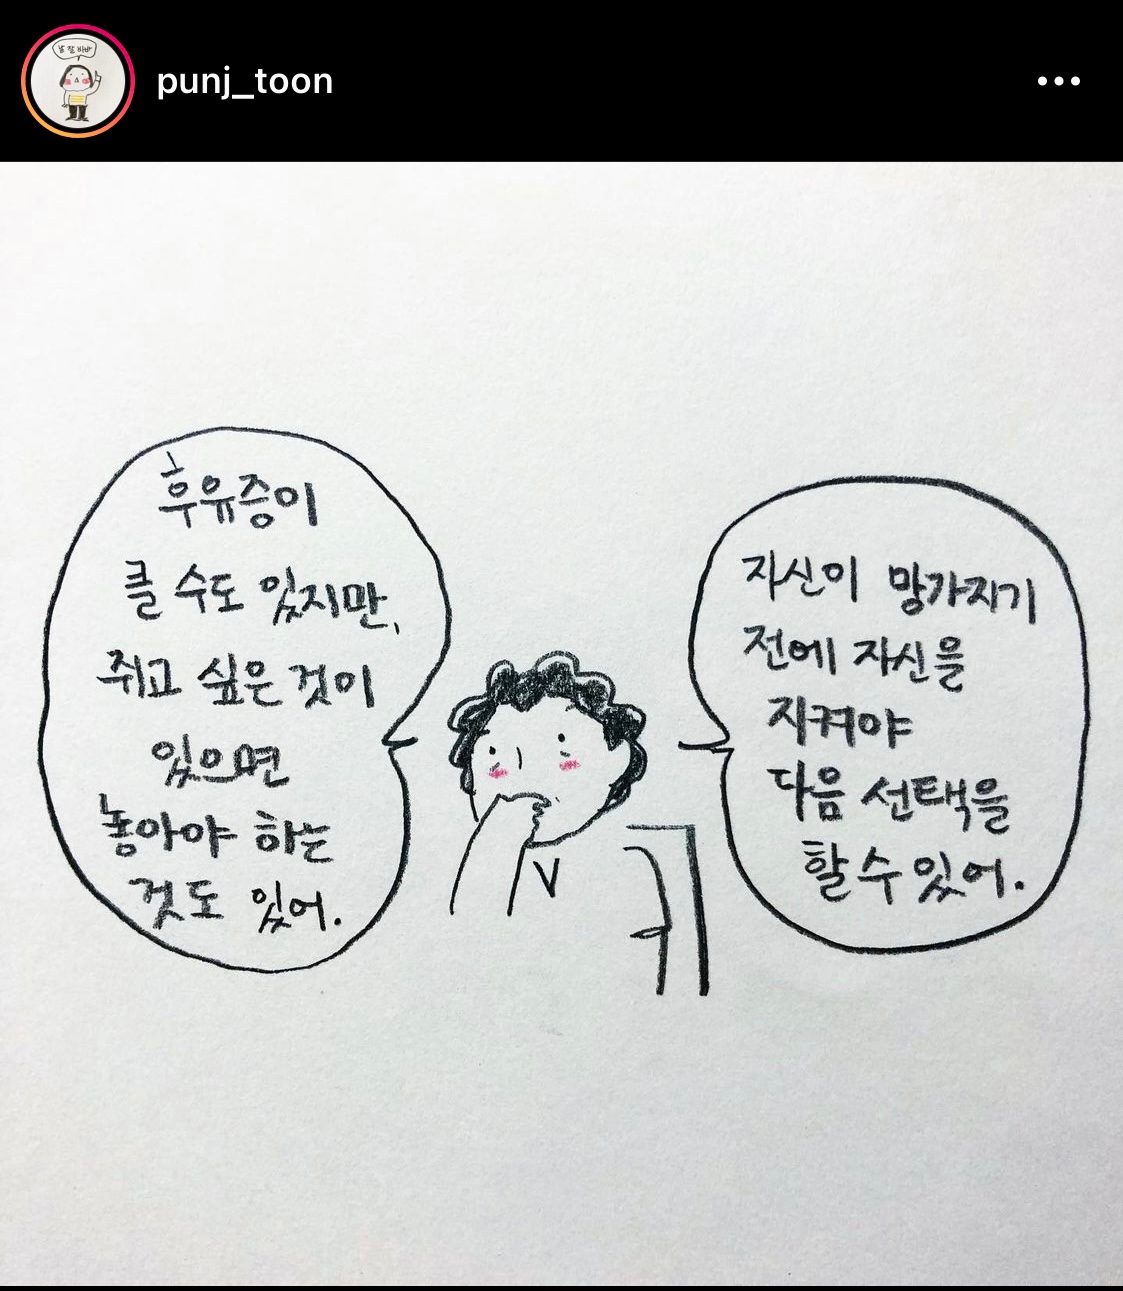 날 잘 봐봐
punj_toon
후유증이
클 수도 있지만,
쥐고 싶은 것이
있으면
놓아야 하는
것도 있어.
자신이 망가지기
전에 자신을
지켜야
다음 선택을
할 수 있어.